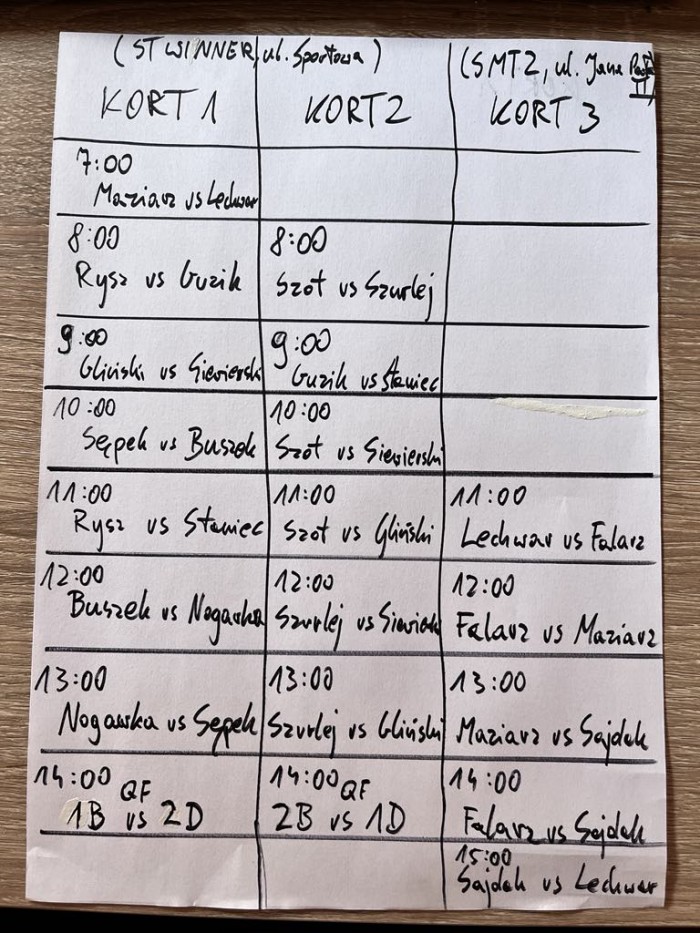 (ST WINNER, ul. Sportowa)
(SMTZ, ul. Jana Pawła II)
KORT 1
KORT 2
KORT 3
7:00
Maziarz vs Lechwar
8:00
Rysz vs Guzik
8:00
Szot vs Szurlej
9:00
Gliński vs Siewierski
9:00
Guzik vs Staniec
10:00
Sępek vs Buszek
10:00
Szot vs Siewierski
11:00
Rysz vs Staniec
11:00
Szot vs Gliński
11:00
Lechwar vs Falarz
12:00
Buszek vs Nogawka
12:00
Szurlej vs
12:00
Falarz vs Maziarz
13:00
Nogawka vs Sępek
13:00
Szurlej vs Gliński
13:00
Maziarz vs Sajdak
14:00 QF
1B vs 2D
14:00 QF
2B vs 1D
14:00
Falarz vs Sajdak
15:00
Sajdak vs Lechwar